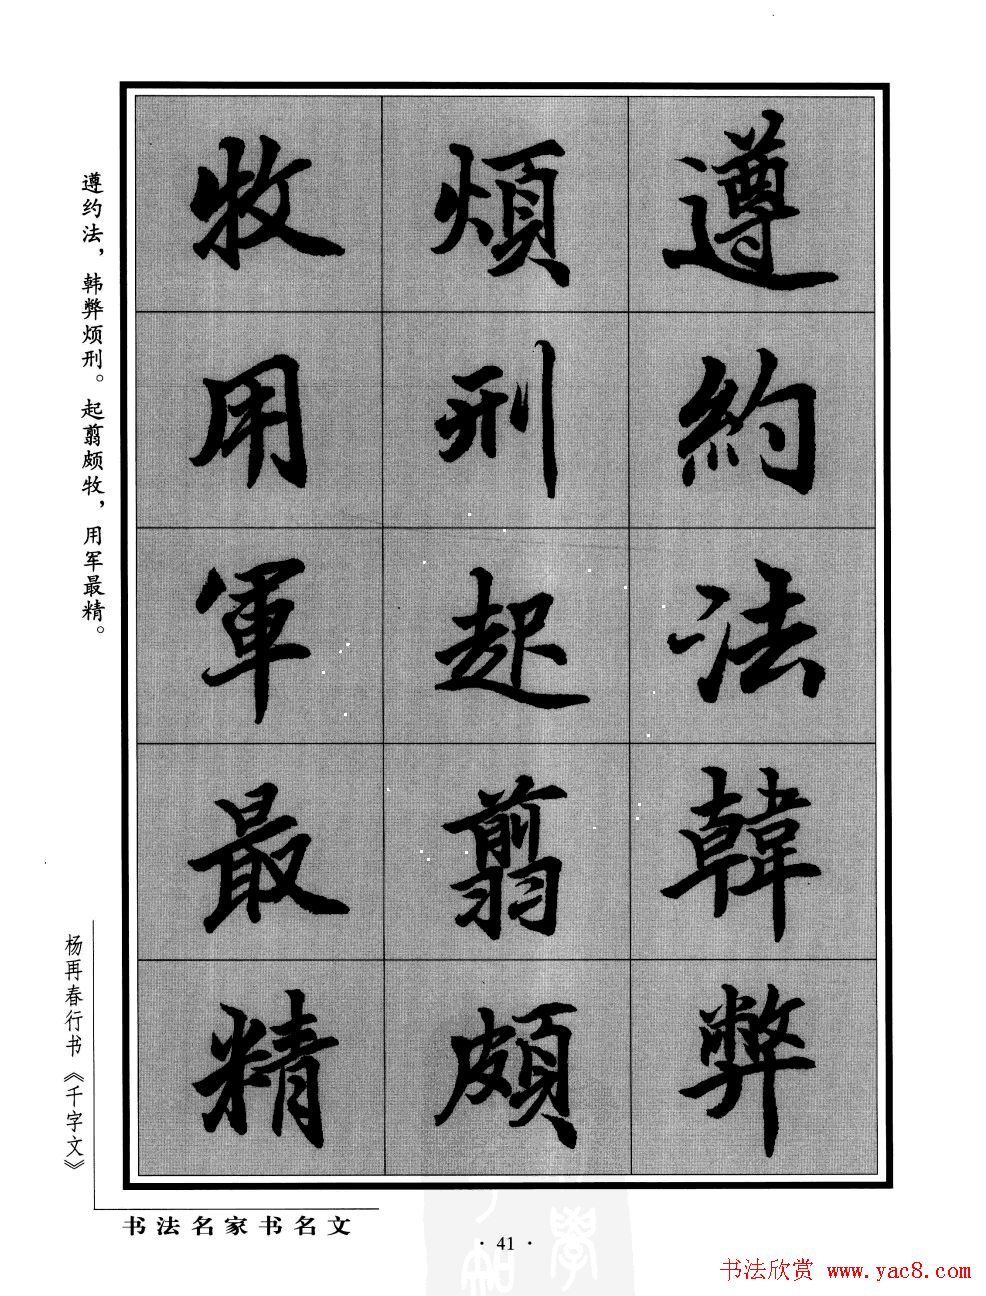 遵約法韓弊
煩刑起翦頗
牧用軍最精
遵约法，韩弊烦刑。起翦颇牧，用军最精。
杨再春行书《千字文》
书法名家书名文
· 41 ·
书法欣赏 www.yac8.com